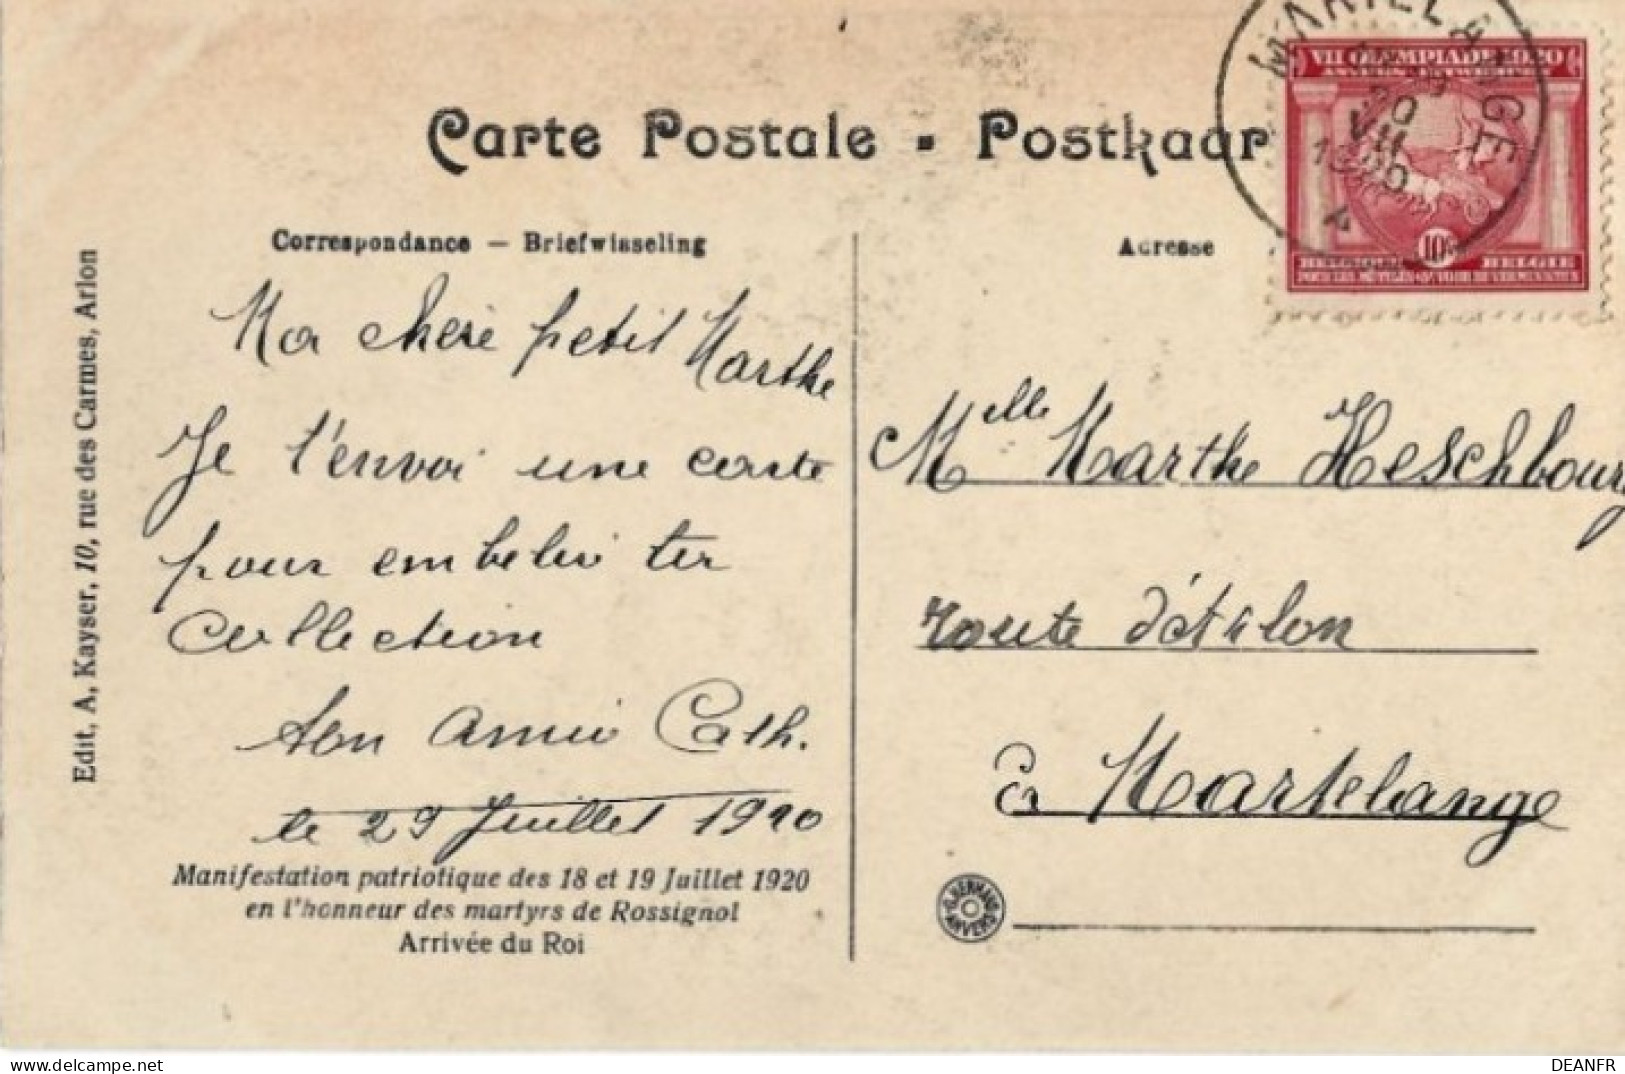 Carte Postale - Postkaar
MARTELANGE
20
VII
1920
VII OLYMPIADE 1920
ANVERS ANTWERPEN
10c
BELGIQUE BELGIË
Correspondance — Briefwisseling
Adresse
Ma chère petit Marthe
Je t'envoi une carte
pour embelir ter
collection
ton amie Cath.
le 29 Juillet 1920
Manifestation patriotique des 18 et 19 Juillet 1920
en l'honneur des martyrs de Rossignol
Arrivée du Roi
Edit, A, Kayser, 10, rue des Carmes, Arlon
Melle Marthe Heschbourg
route d'Arlon
à Martelange
ANVERS
DEANFR